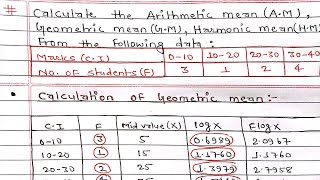 # Calculate the Arithmetic mean (A.M),
Geometric mean (G.M), Harmonic mean (H.M)
From the following data:
Marks (C.I) 0-10 10-20 20-30 30-40
No. of students (F) 3 1 2 4
• Calculation of Geometric mean:-
C.I F Mid value (X) logX FlogX
0-10 3 5 0.6989 2.0967
10-20 1 15 1.1760 1.1760
20-30 2 25 1.3979 2.7958